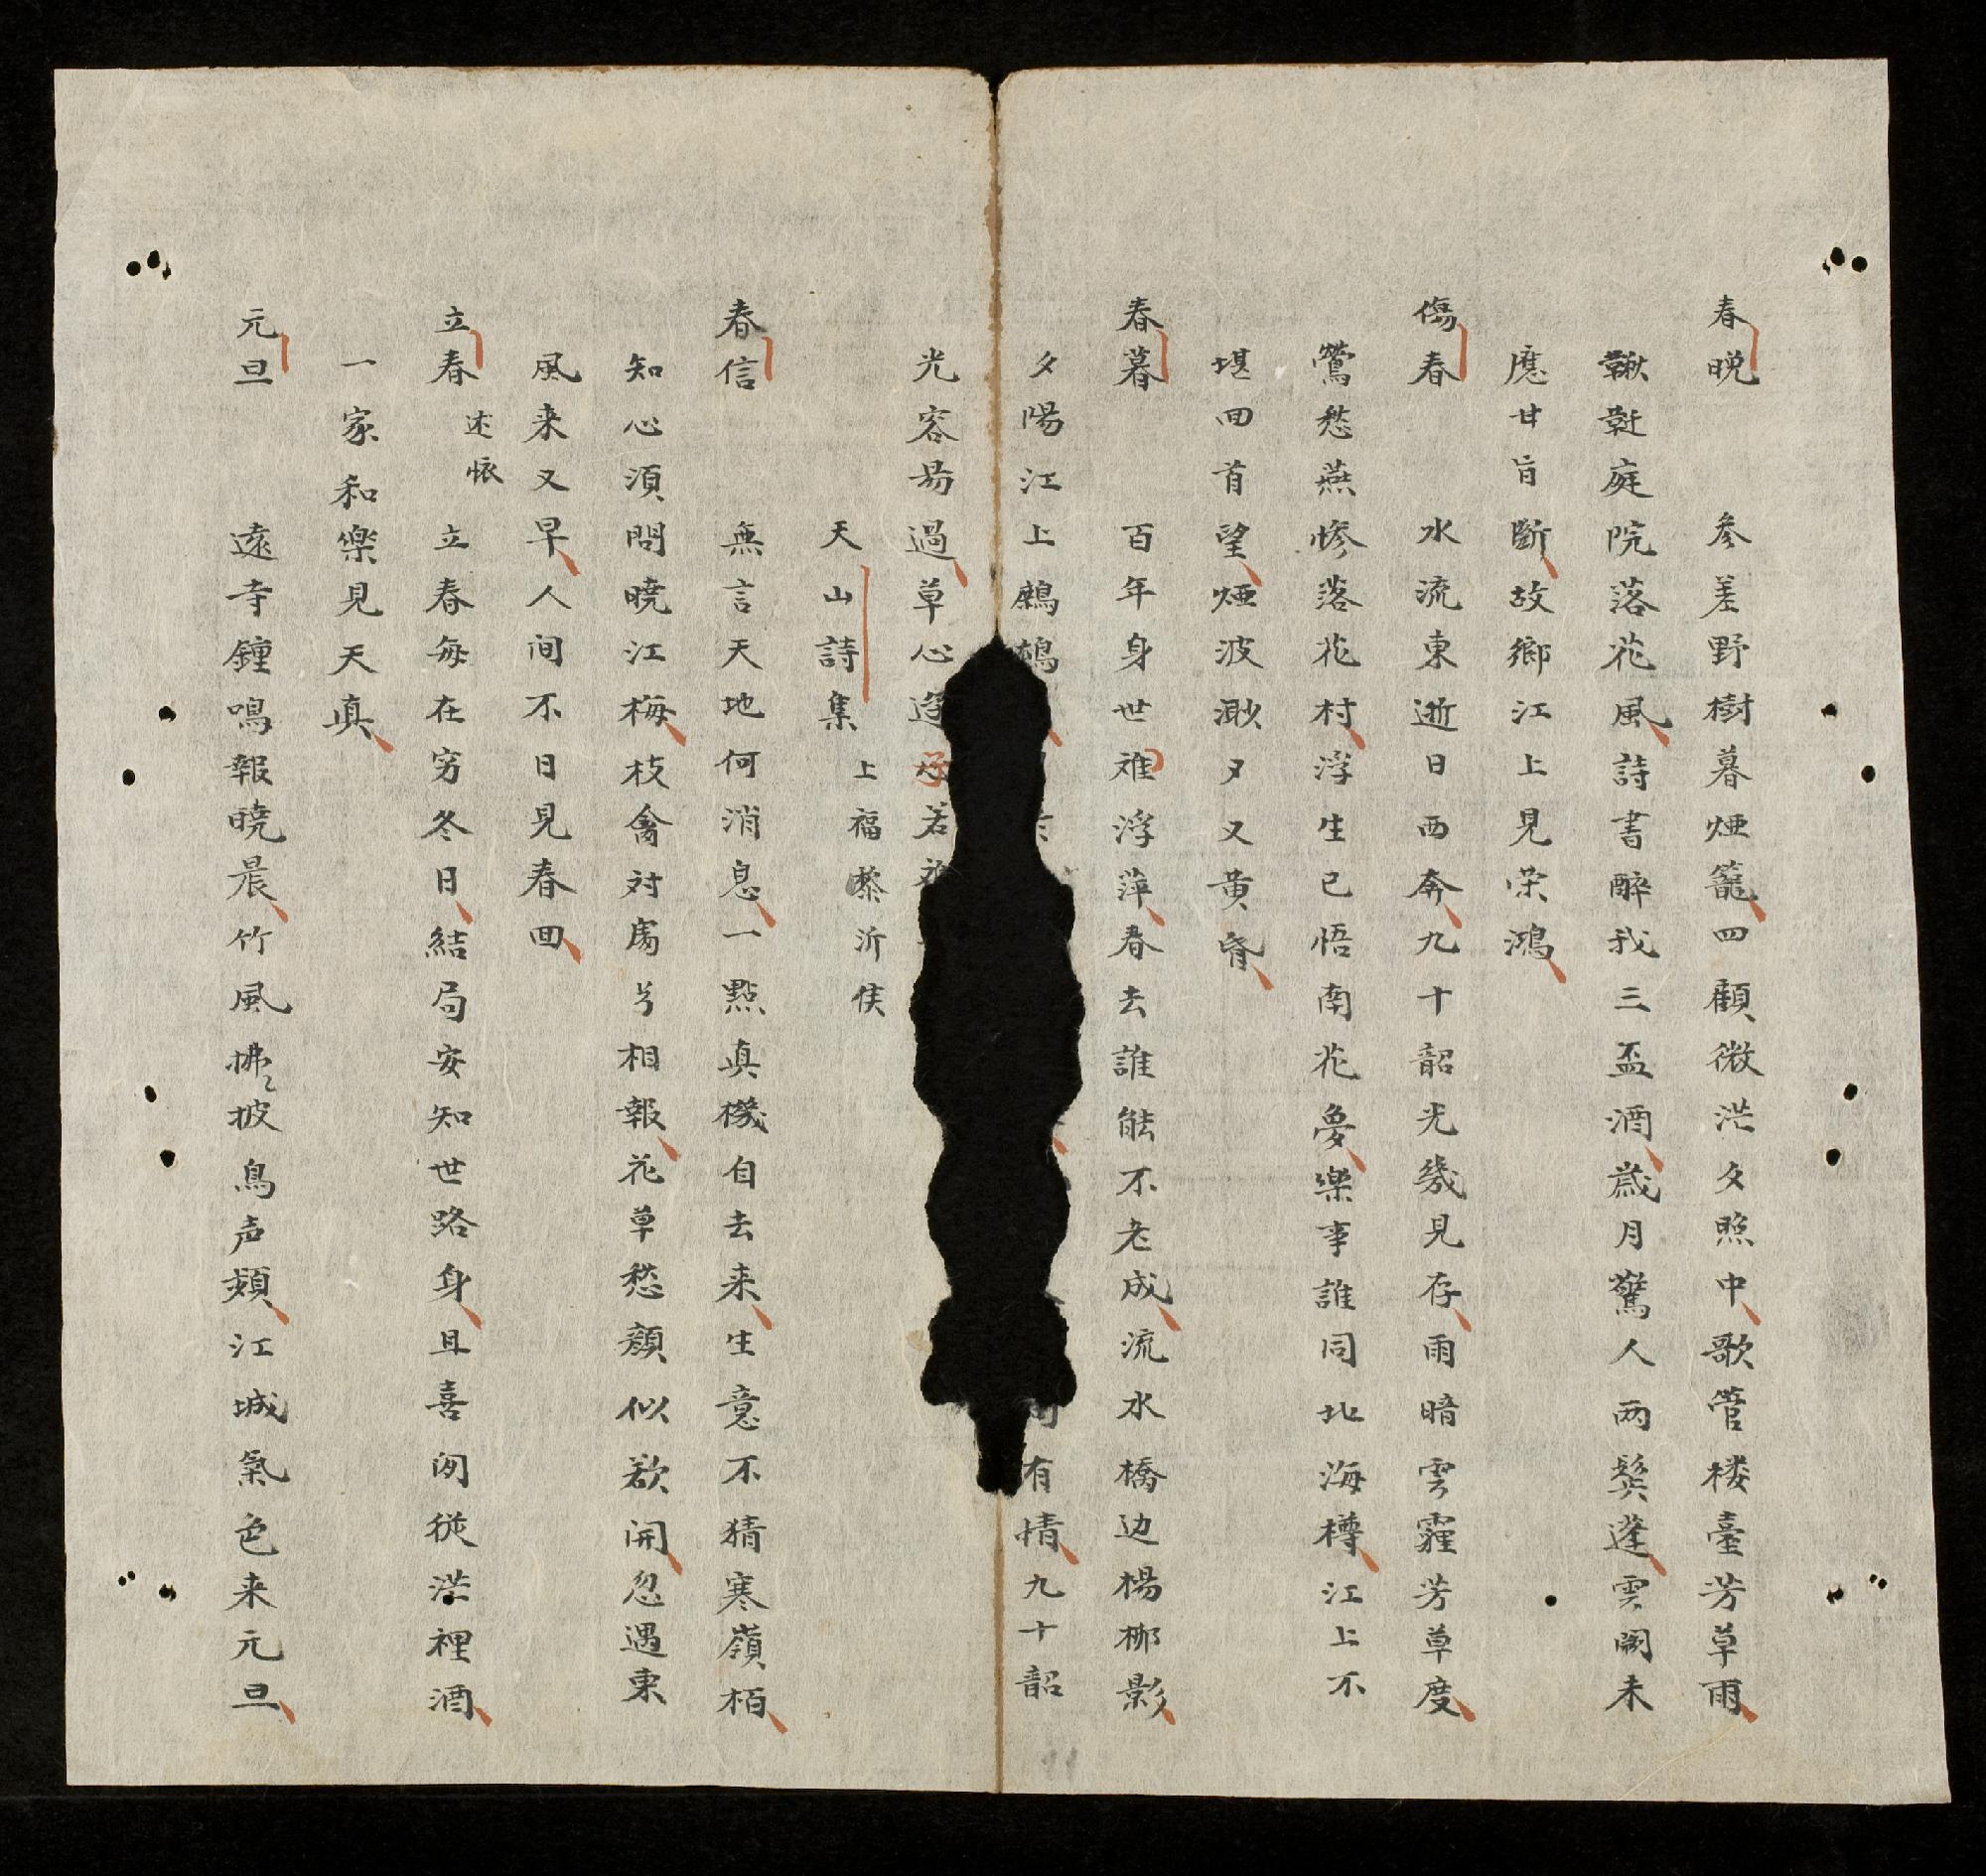 春晚　參差野樹暮烟籠四顧微茫夕照中歌管楼臺芳草雨
鞦韆庭院落花風詩書醉我三盃酒歲月驚人两鬓蓬雲闕未
應甘旨斷故鄉江上見宋鴻
傷春　水流東逝日西奔九十韶光幾見存雨暗雲霾芳草度
鶯愁燕惨落花村浮生已悟南花夢樂事誰同北海樽江上不
堪回首望烟波渺夕又黄昏
春暮　百年身世难浮萍春去誰能不老成流水橋边楊柳影
夕陽江上鷓鴣有情九十韶
光容易過草心若
天山詩集　上福黎沂侯
春信　無言天地何消息一點真機自去来生意不猜寒嶺栢
知心須問曉江梅枝禽対屬兮相報花草愁顏似欲開忽遇東
風来又早人间不日見春回
立春　述懷　立春每在穷冬日結局安知世路身且喜闲從茫裡酒
一家和樂見天真
元旦　遠寺鐘鳴報曉晨竹風拂〻披鳥声頻江城氣色来元旦